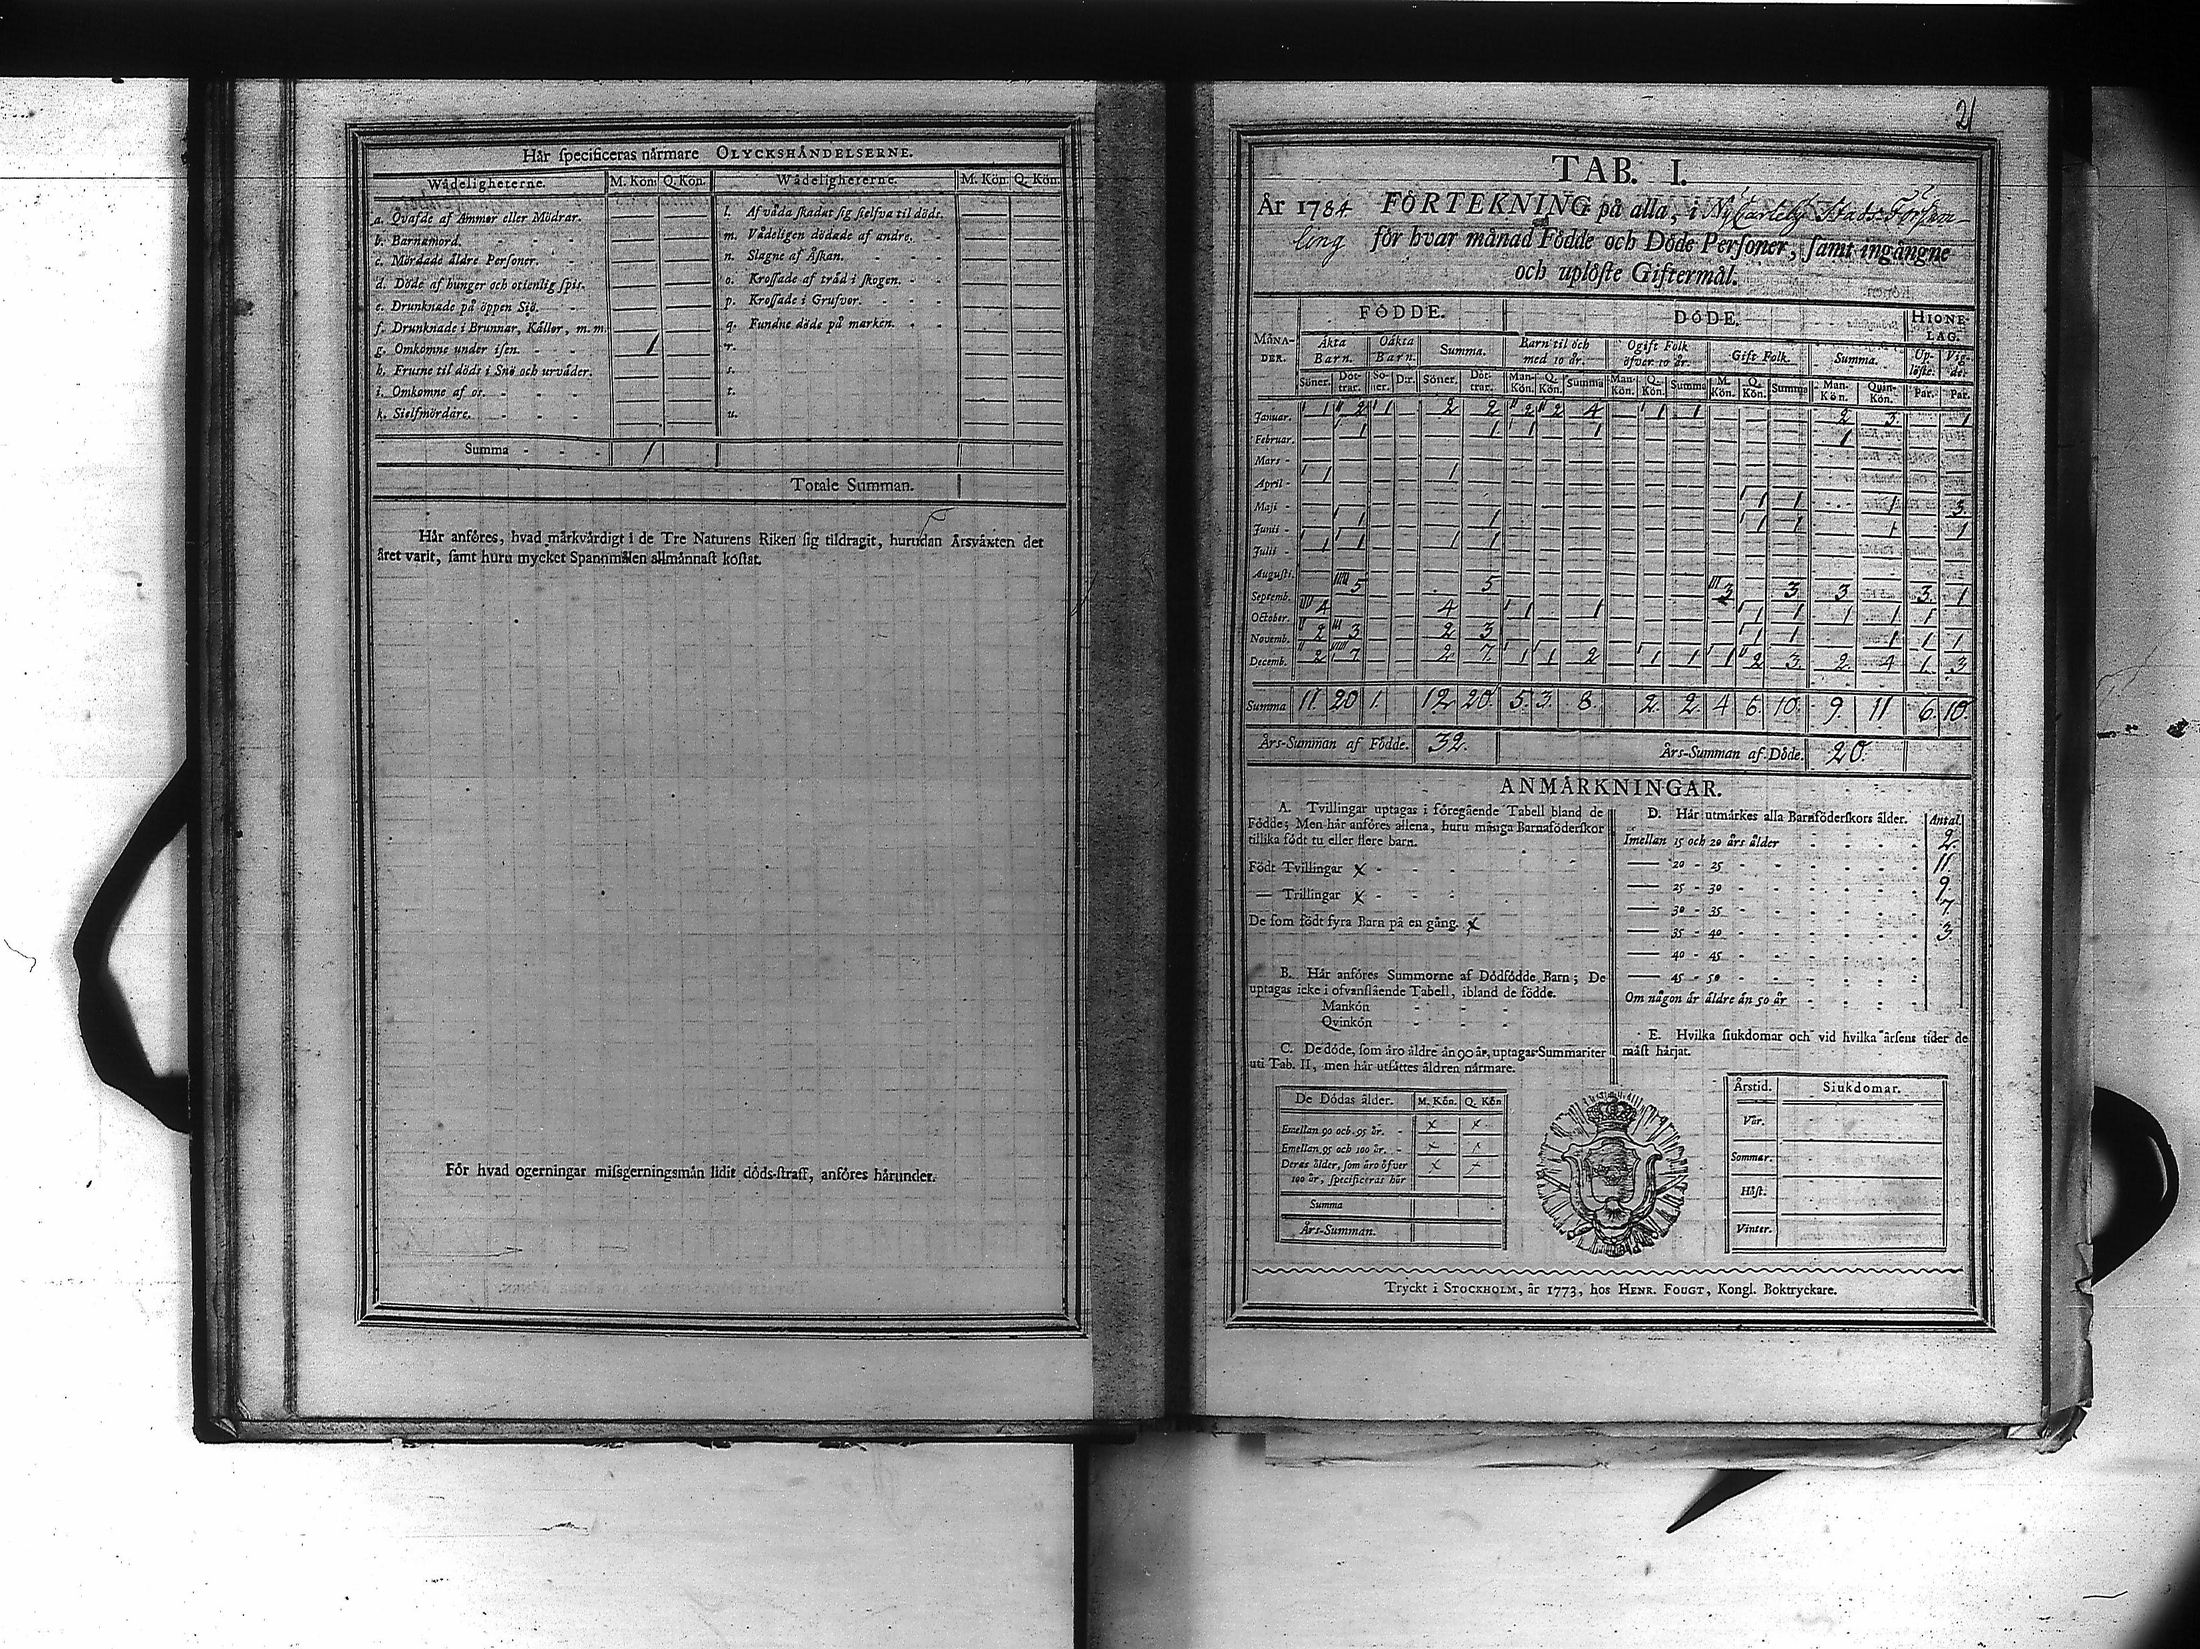 Hår specificeras nårmare OLYCKSHÅNDELSERNE.
Wådeligheterne. M. Kön. Q. Kön. Wådeligheterne. M. Kön. Q. Kön.
a. Qvafde af Ammor eller Mödrar. — — l. Af våda skadat sig sielfva til döds. — —
b. Barnamord. — — m. Vådeligen dödade af andre. — —
c. Mördade åldre Personer. — — n. Slagne af Åskan. — —
d. Döde af hunger och otienlig spis. — — o. Krossade af tråd i skogen. — —
e. Drunknade på öppen Siö. — — p. Krossade i Grufvor. — —
f. Drunknade i Brunnar, Kållor, m.m. — — q. Fundne döde på marken. — —
g. Omkomne under isen. 1 — r. — —
h. Frusne til döds i Snö och urvåder. — — s. — —
i. Omkomne af os. — — t. — —
k. Sielfmördare. — — u. — —
Summa - - - 1
Totale Summan.
Hår anföres, hvad mårkvårdigt i de Tre Naturens Riken sig tildragit, hurudan Årsvåxten det
året varit, samt huru mycket Spannmålen allmånnast kostat.
För hvad ogerningar missgerningsmån lidit döds-straff, anföres hårunder.
21
TAB. I.
År 1784 FÖRTEKNING på alla, i NyCarleby Stads Försam-
ling för hvar månad Födde och Döde Personer, samt ingångne
och uplöste Giftermål.
FÖDDE. DÖDE. HIONE-
LAG.
MÅNA-
DER. Åkta
Barn. Oåkta
Barn. Summa. Barn til och
med 10 år. Ogift Folk
öfver 10 år. Gift Folk. Summa. Up-
löste. Vig-
de.
Söner. Döt-
trar. Sö-
ner. D:r. Söner. Döt-
trar. Man-
Kön. Q.
Kön. Summa Man-
Kön. Q.
Kön. Summa M.
Kön. Q.
Kön. Summa Man-
Kön. Quin-
Kön. Par. Par.
Januar. 1 2 1 — 2 2 2 2 4 — 1 1 — — — 2 3 1
Februar. — 1 — — — 1 1 — 1 — — — — — — 1 —
Mars -
April - 1 1
Maji - 1 1 1 3
Junii - 1 1 1 1 1 1
Julii - 1 1 1 1
Augusti.
Septemb. 5 5 3 3 3 3 1
October. 4 4 1 1 1 1 1 1 1
Novemb. 2 3 2 3 1 1 1 1 1
Decemb. 2 7 2 7 1 1 2 1 1 1 2 3 2 4 1 3
Summa 11 20 1. 12 20. 5. 3. 8. 2. 2. 4 6. 10. 9. 11 6. 10.
Års-Summan af Födde. 32. Års-Summan af Döde. 20.
ANMÅRKNINGAR.
A. Tvillingar uptagas i föregående Tabell bland de
Födde; Men hår anföres allena, huru många Barnaföderskor
tillika födt tu eller flere barn.
Födt Tvillingar x - - -
— Trillingar x - - -
De som födt fyra Barn på en gång. x
B. Hår anföres Summorne af Dödfödde Barn; De
uptagas icke i ofvanstående Tabell, ibland de födde.
Mankön - - -
Qvinkön - - -
C. De döde, som åro åldre ån 90 år, uptagas Summariter
uti Tab. II, men hår utsåttes åldren nårmare.
De Dödas ålder. M. Kön. Q. Kön
Emellan 90 och 95 år. - x x
Emellan 95 och 100 år. - x x
Deras ålder, som åro öfver x x
100 år, specificeras hår
Summa
Års-Summan.
D. Hår utmårkes alla Barnföderskors ålder. Antal
Imellan 15 och 20 års ålder 2.
— 20 - 25 11.
— 25 - 30 9.
— 30 - 35 7.
— 35 - 40 3.
— 40 - 45
— 45 - 50
Om någon år åldre ån 50 år
E. Hvilka siukdomar och vid hvilka årsens tider de
måst hårjat.
Årstid. Siukdomar.
Vår.
Sommar.
Höst.
Vinter.
Tryckt i STOCKHOLM, år 1773, hos HENR. FOUGT, Kongl. Boktryckare.